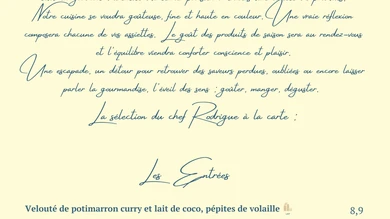 Notre cuisine se voudra goûteuse, fine et haute en couleur. Une vraie réflexion
composera chacune de vos assiettes. Le goût des produits de saison sera au rendez-vous
et l'équilibre viendra conforter conscience et plaisir.
Une escapade, un détour pair retrouver des saveurs perdues, oubliées ou encore laisser
parler la gourmandise, l'éveil des sens : goûter, manger, déguster.
La sélection du chef Rodrigue à la carte :
Les Entrées
Velouté de potimarron curry et lait de coco, pépites de volaille 8,9